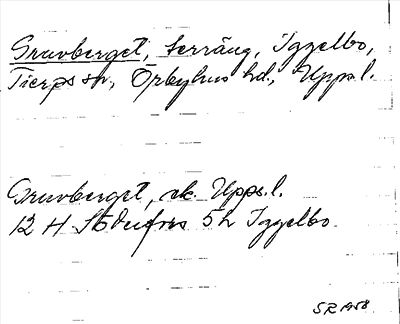 Gruvberget, terräng, Iggelbo,
Tierps sn, Örbyhus hd, Upps. l.
Gruvberget, ek. Upps. l.
12 H 5h Iggelbo
SR 1958